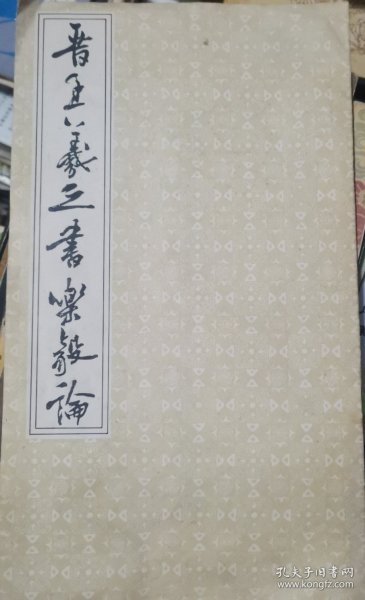 晋王羲之书乐毅论
孔夫子旧书网
www.kongfz.com